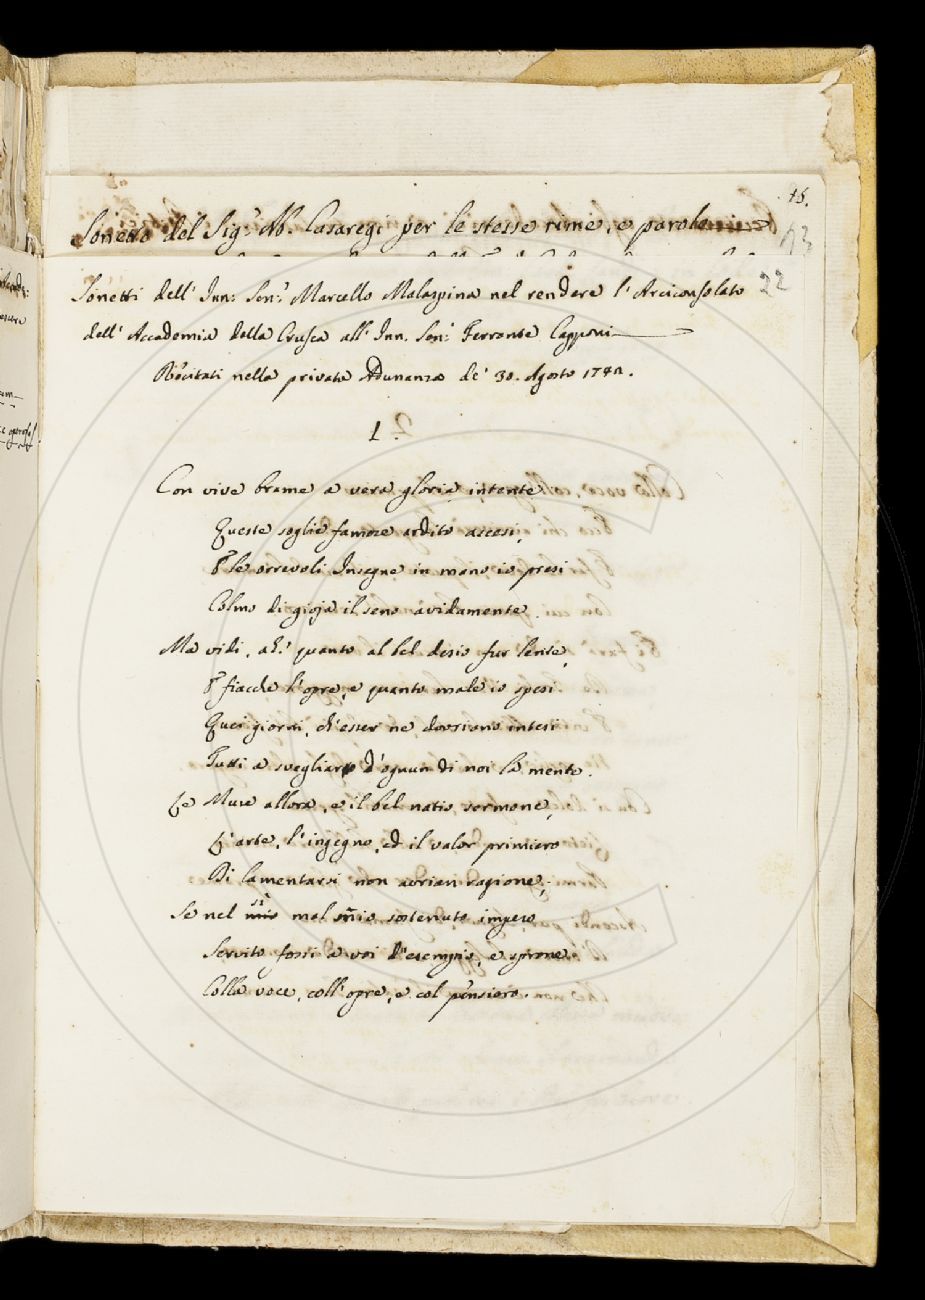 15.
Sonetto del Sig.r Ab. Casaregi per le stesse rime, e parole
43
22
Sonetti dell' Inn: Sen.r Marcello Malaspina nel rendere l'Arciconsolato
dell' Accademia della Crusca all' Inn. Sen.r Ferrante Capponi
Recitati nella privata Adunanza de' 30. Agosto 1741.
1.
Con vive brame a vera gloria intente
Queste soglie famose ardito ascesi,
E le orrevoli Insegne in mano io presi
Colmo di gioja il seno avidamente.
Ma vidi, ah! quanto al bel desio fur lente,
E fiacche l'opre, e quanto male io spesi
Quei giorni, ch'esser ne dovriano intesi
Tutti a svegliar d'ognun di noi la mente.
Le Muse allora, e il bel natio sermone,
L'arte, l'ingegno, ed il valor primiero
Di lamentarsi non avrian ragione;
Se nel sì mal mio sostenuto impero
Servito fossi a voi d'esempio, e sprone
Colla voce, coll'opre, e col pensiero.